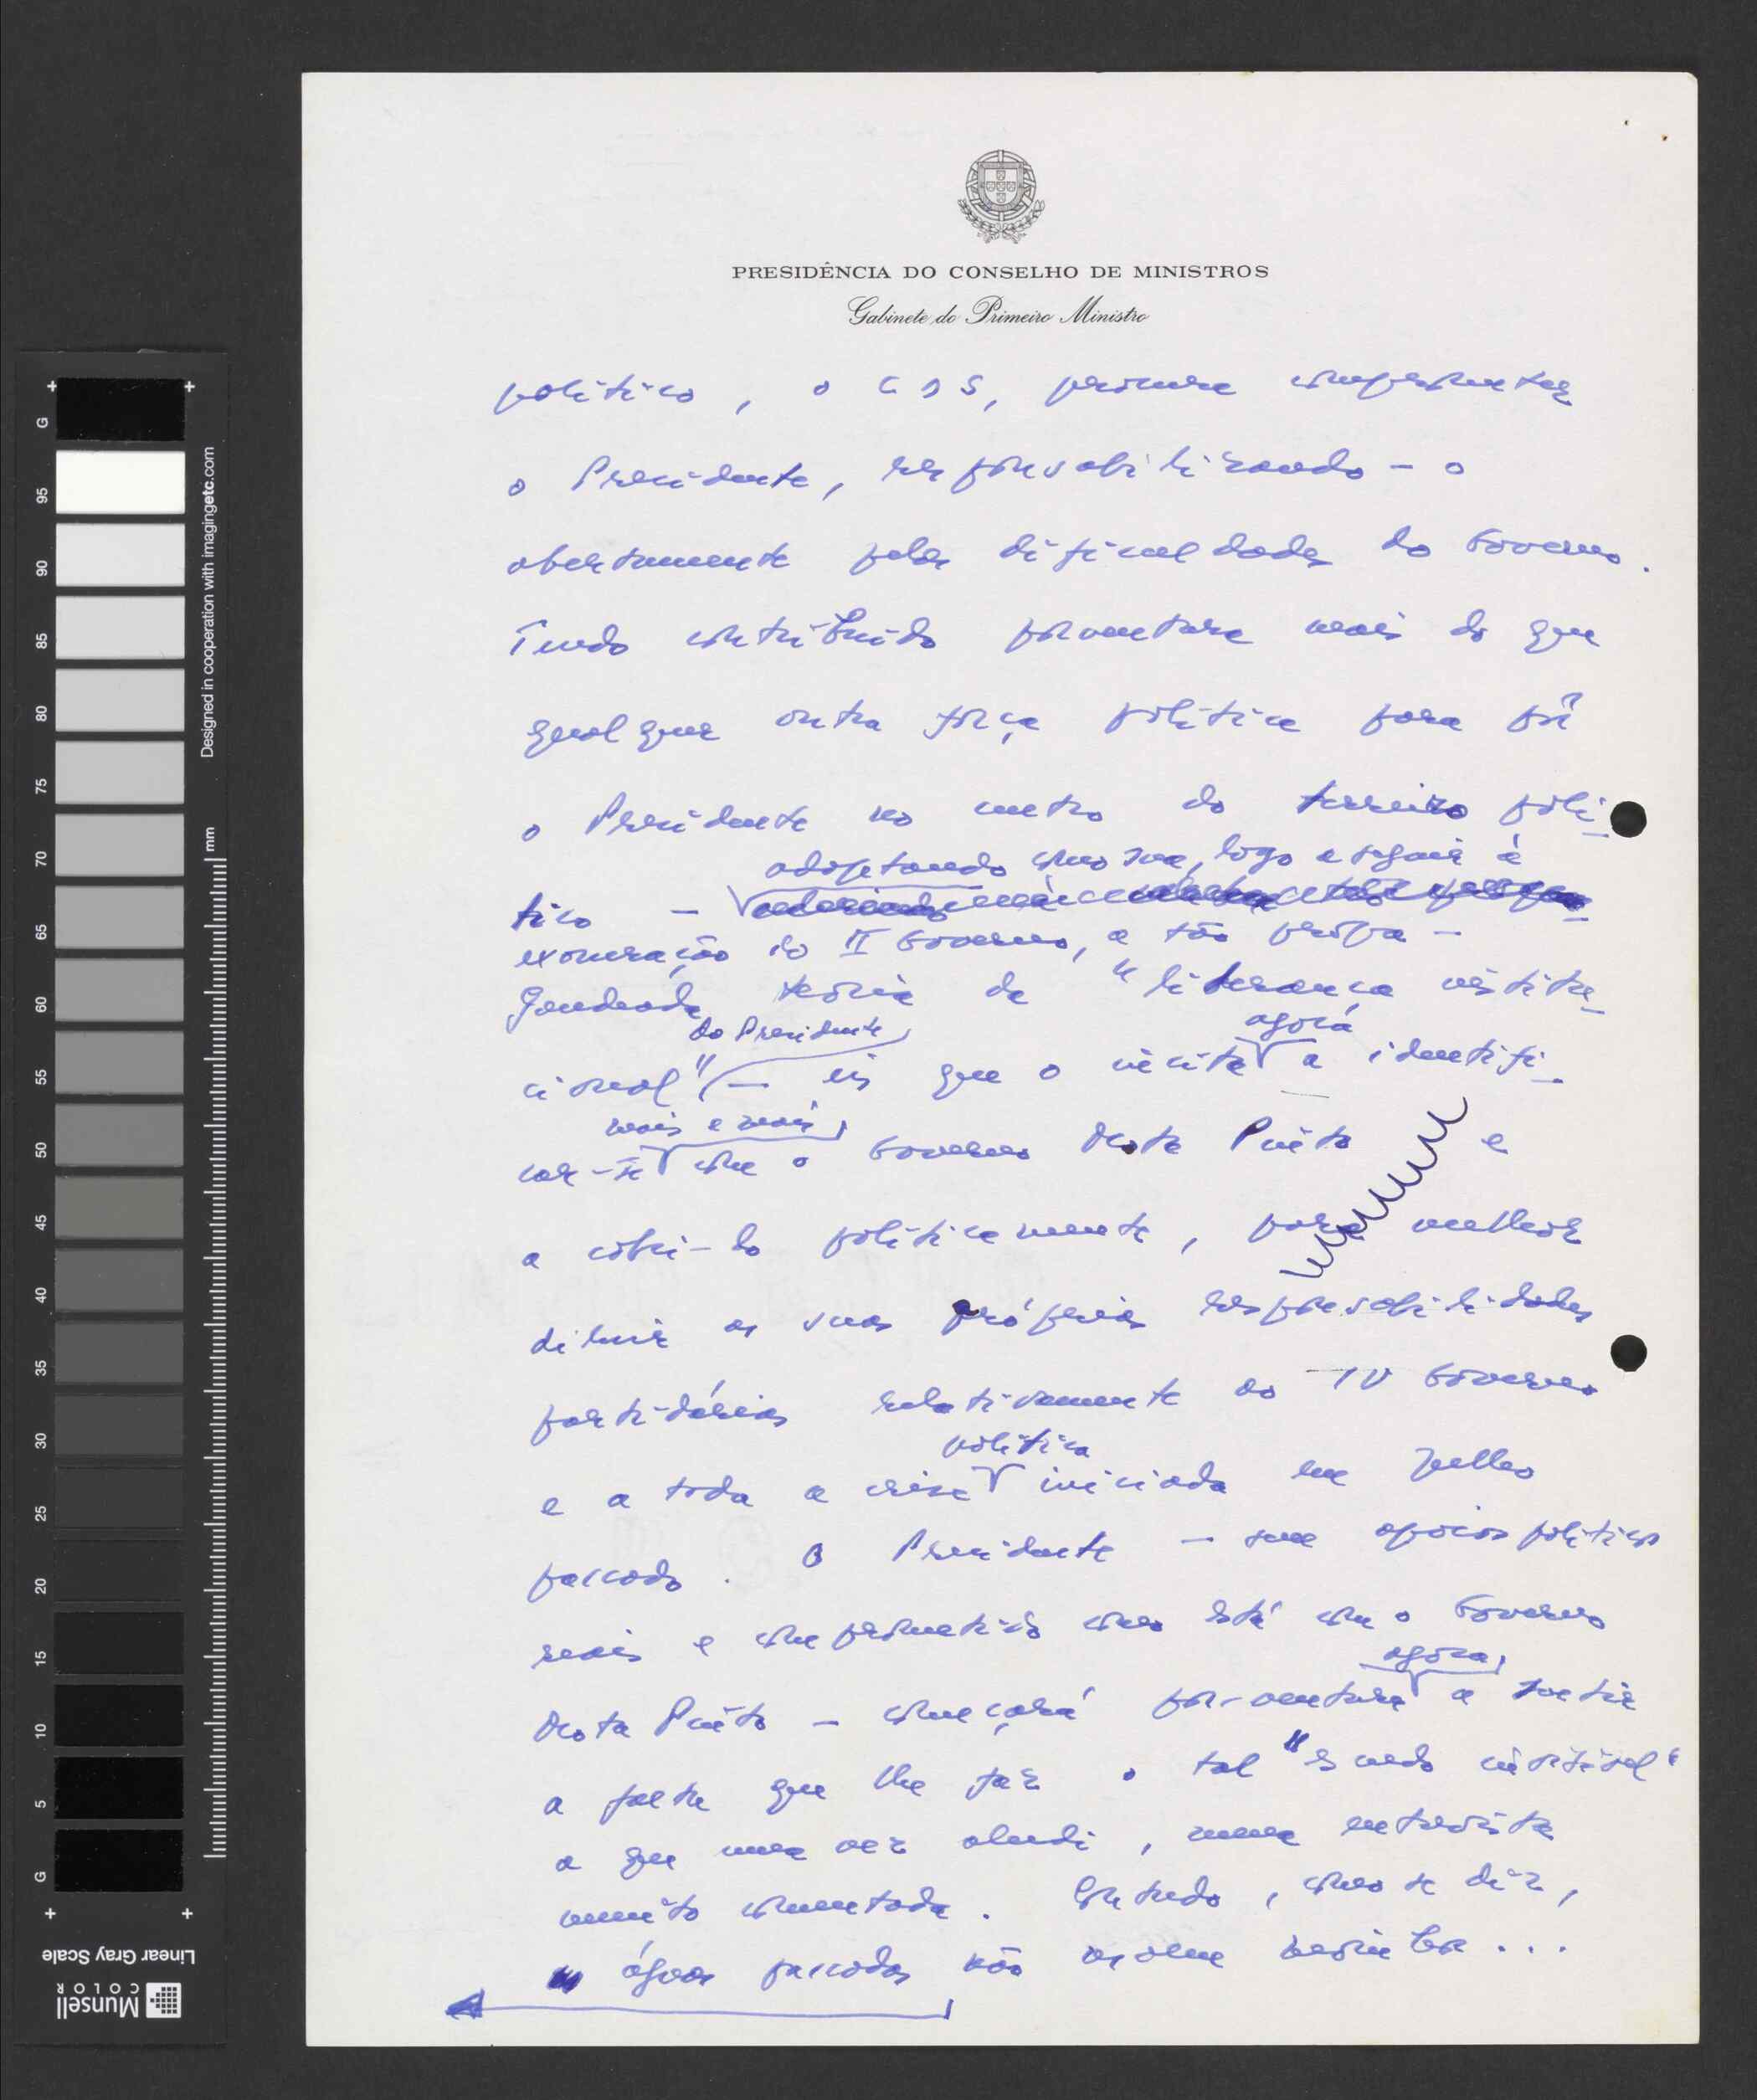 PRESIDÊNCIA DO CONSELHO DE MINISTROS
Gabinete do Primeiro Ministro
político, o CDS, procura
o Presidente, responsabilizando-o
abertamente pelas dificuldades do Governo.
Tendo contribuído porventura mais do que
qualquer outra força política para pôr
o Presidente no centro do terreiro polí-
adoptando como sua, logo a seguir à
tico —
exoneração do II Governo, a tão propa-
gandeada teoria da "liderança institu-
do Presidente
agora
cional" — eis que o incita a identifi-
mais e mais
car-se com o Governo Mota Pinto e
a cobri-lo politicamente, para melhor
diluir as suas próprias responsabilidades
partidárias relativamente ao IV Governo
política
e a toda a crise iniciada em Julho
passado. O Presidente — sem apoios políticos
reais e comprometido como está com o Governo
agora
Mota Pinto — começará porventura a sentir
a falta que lhe faz o tal "escudo invisível"
a que uma vez aludi, numa entrevista
muito comentada. Contudo, como se diz,
águas passadas não movem moinhos...
Designed in cooperation with imagingetc.com
mm
G 95 90 85 80 75 70 65 60 55 50 45 40 35 30 25 20 15 10 5 G
Linear Gray Scale
Munsell
COLOR